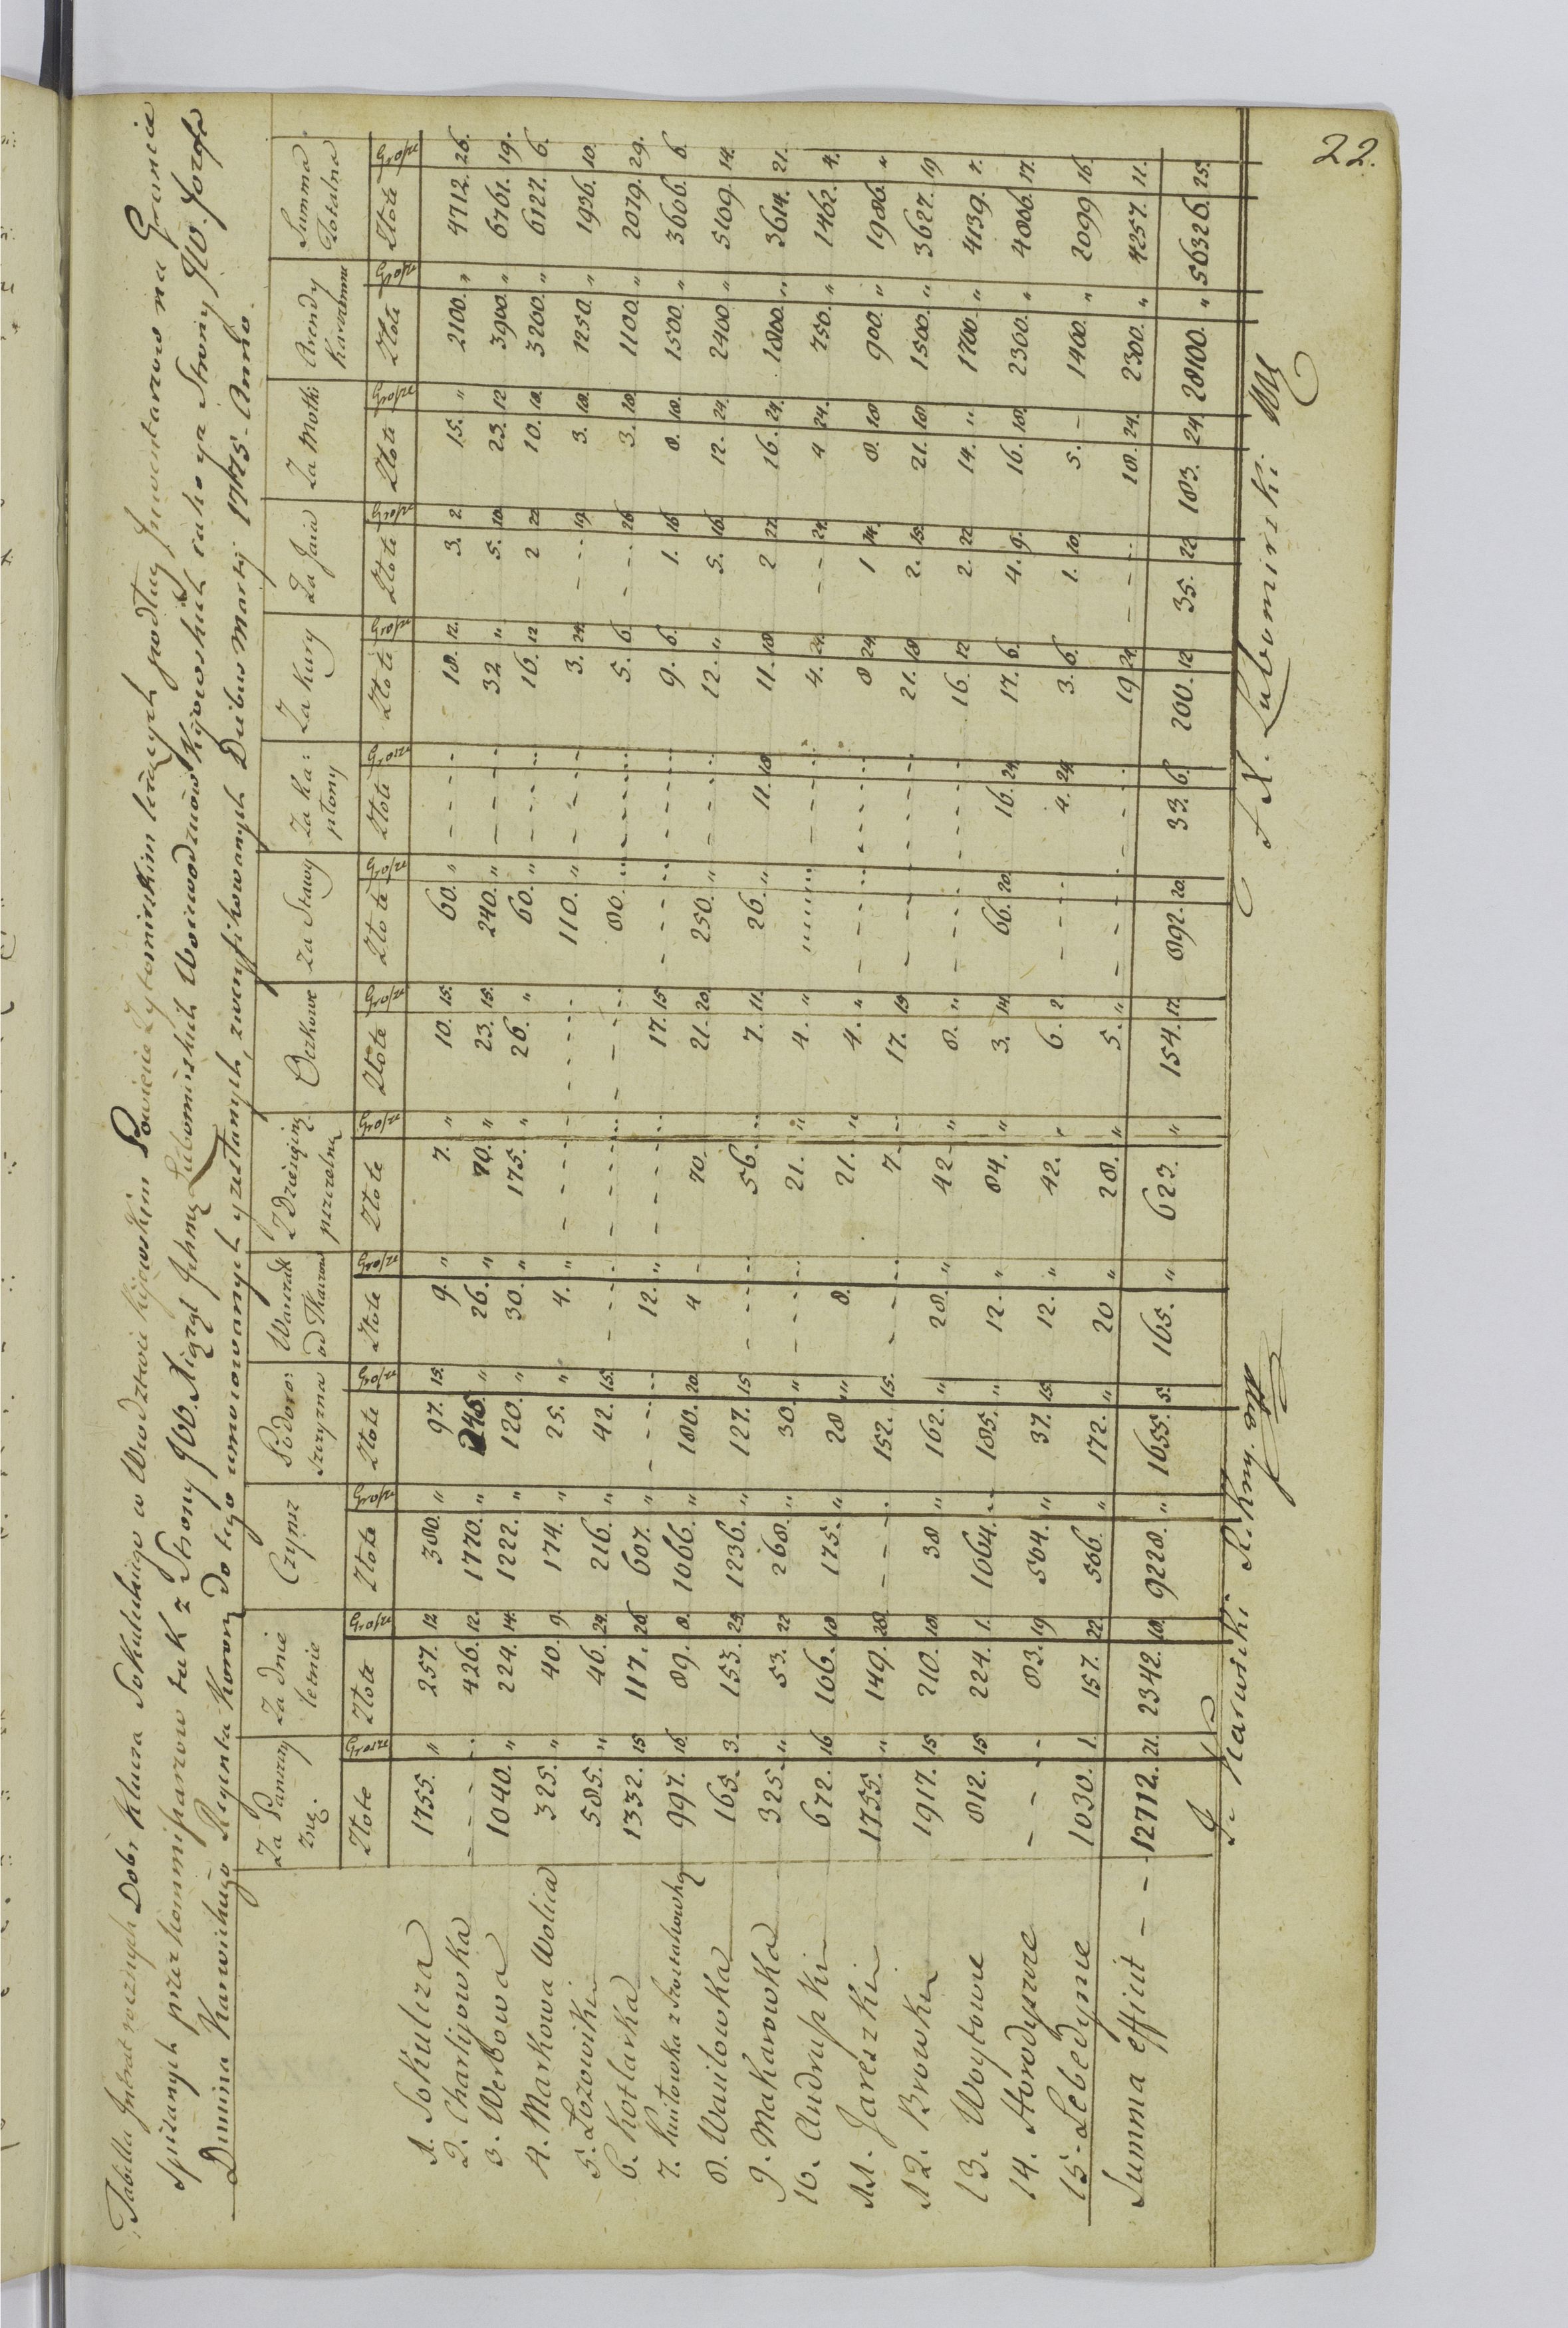 Tabella Intrat rocznych Dobr Klucza Sokulskiego w Wwodztwie Kijowskim Powiecie Zytomirskim leżących podług Inwentarzow na Gruncie
spisanych przez Kommissarzow tak z Strony JOO. Xiążąt Ichmcz Lubomirskich Woiewodzicow Kijowskich iako y z Strony JMO. Jozefa
Dunina Karwickiego Regenta Koron: do tego umocowanych y zesłanych, zweryfikowanych Diebus Martij 1775 Anno.
Za Panszczy znę. | Za dnie letnie | Czynsz | Podoro: szczyzna | Warsztat: od Tkaczow | Z Dziesięciny pszczelney | Oczkowe | Za Stawy | Za Ka: płony | Za Kury | Za Jaia | Za Motki | Arendy Karczemne | Summa Totalna
Złote Grosze | Złote Grosze | Złote Grosze | Złote Grosze | Złote Grosze | Złote Grosze | Złote Grosze | Złote Grosze | Złote Grosze | Złote Grosze | Złote Grosze | Złote Grosze | Złote Grosze | Złote Grosze
1. Sokulcza 1755. " 257. 12 380. " 97. 15. 9. " 7. " 10. 15. 60. " - - 18. 12. 3. 2 15. " 2100. " 4712. 26.
2. Charlijowka - - 426. 12. 1770. " 245. " 26. " 70. " 23. 15. 240. " - - 32. " 5. 10. 23. 12 3900. " 6761. 19.
3. Werbowa 1040. " 224. 14. 1222. " 120. " 30. " 175. " 26. " 60. " - - 16. 12 2 22 10. 18. 3200. " 6127. 6.
4. Markowa Wolica 325. " 40. 9 174. " 25. " 4. " - - - - 110. " - - 3. 24. - 19. 3. 18. 1250. " 1936. 10.
5. Łozowiki 585. " 46. 24. 216. " 42. 15. - - - - - - 80. " - - 5. 6. - 26. 3. 18. 1100. " 2079. 29.
6. Kotlarka 1332. 15 117. 26. 607. " - - 12. " - - 17. 15 - - - - 9. 6. 1. 16 8. 18. 1500. " 3606. 6.
7. 997. 16. 89. 8. 1066. " 180. 20. 4 - 70. - 21. 20. 250. " - - 12. " 5. 16. 12. 24. 2400. " 5109. 14.
8. Wacilowka 165. 3. 153. 23. 1236. " 127. 15 - - 56. - 7. 11. 26. " 11. 18. 11. 18 2 27. 16. 24. 1800. " 3614. 21.
9. Makarowka 325. " 53. 22 268. " 30. " - - 21. " 4. " - - - - 4. 24. - 24. 4 24. 750. " 1462. 4.
10. Andrupki 672. 16 166. 18 175. " 28 " 8. - 21. " 4. " - - - - 8 24. 1 14. 8. 18 900. " 1986. "
11. Jareszki 1755. " 149. 28. - - 152. 15. - - 7. - 17. 15 - - - - 21. 18 2. 15. 21. 18. 1500. " 3627. 19
12. Browki 1917. 15 210. 18 38 " 162. " 28. " 42. " 8. " - - - - 16. 12 2. 22 14. " 1700. " 4139. 7.
13. Woytowce 812. 15 224. 1. 1064. - 185. " 12. " 84. " 3. 14. 66. 20. 16. 24. 17. 6. 4. 9. 16. 18. 2300. " 4806. 17.
14. Horodyszcze - - 83. 19 504. " 37. 15. 12. " 42. " 6. 2. - - 4. 24. 3. 6. 1. 10. 5. - 1400. " 2099 16.
15. Lebedynie 1030. 1. 157. 22. 506. " 172. " 20 " 28. " 5. " - - - - 19 24. - - 18. 24. 2300. " 4257. 11.
Summa efficit - - 12712. 21. 2342. 18. 9228. " 1655. 5. 165. " 623. " 154. 17. 892. 20. 33. 6. 200. 12. 35. 22 183. 24. 28100. " 56326. 25.
J. Karwicki R. Kny.
X. Lubomirski
22.